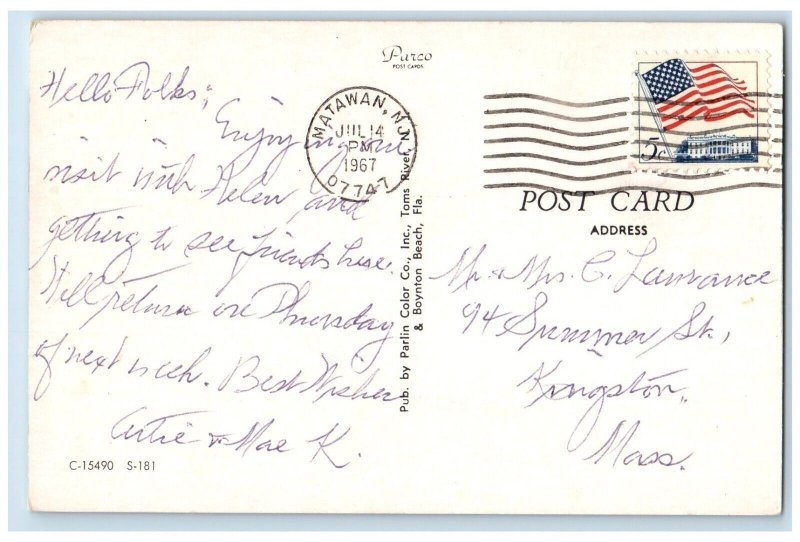 Parco
POST CARDS
Hello Folks;
Enjoying our
visit with Helen and
getting to see friends here.
Will return on Thursday
of next week. Best Wishes
Artie & Mae K.
C-15490 S-181
MATAWAN, N.J.
JUL 14
PM
1967
07747
Pub. by Parlin Color Co., Inc., Toms River,
& Boynton Beach, Fla.
5c
POST CARD
ADDRESS
Mr. & Mrs. C. Lawrance
94 Summer St.,
Kingston,
Mass.